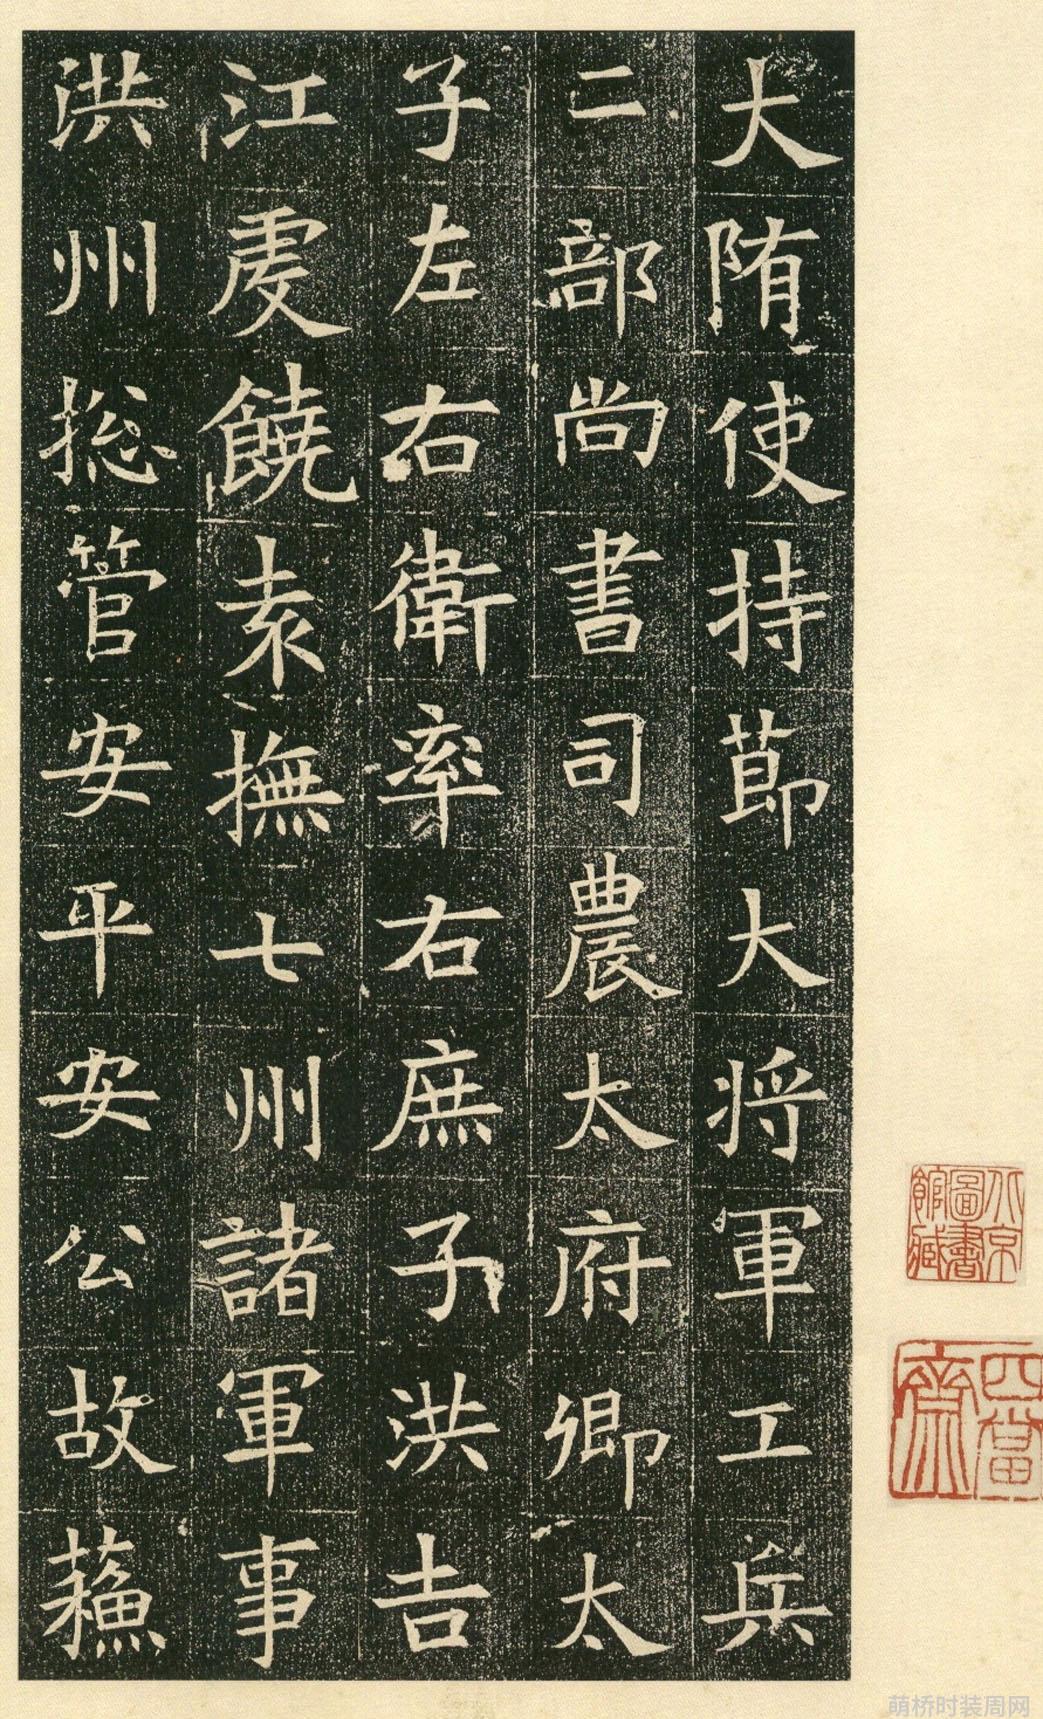 大隋使持節大將軍工兵
二部尚書司農太府卿太
子左右衛率右庶子洪吉
江虔饒袁撫七州諸軍事
洪州総管安平安公故蘓
北京圖書館藏
四當齋
萌桥时装周网